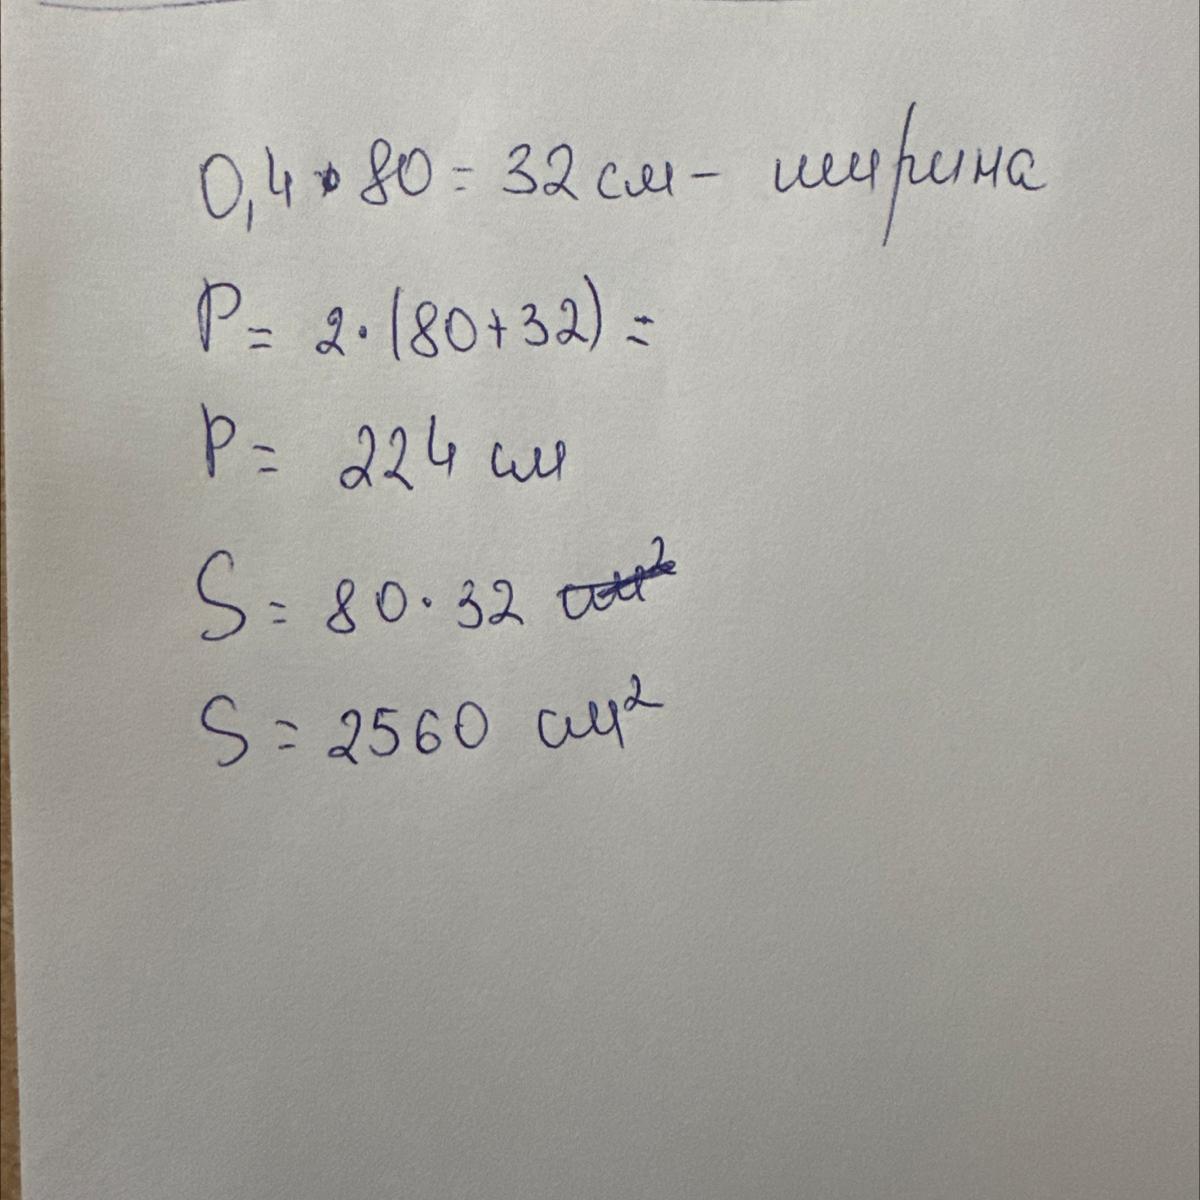 0,4 · 80 = 32 см - ширина
P = 2 · (80 + 32) =
P = 224 см
S = 80 · 32
S = 2560 см²